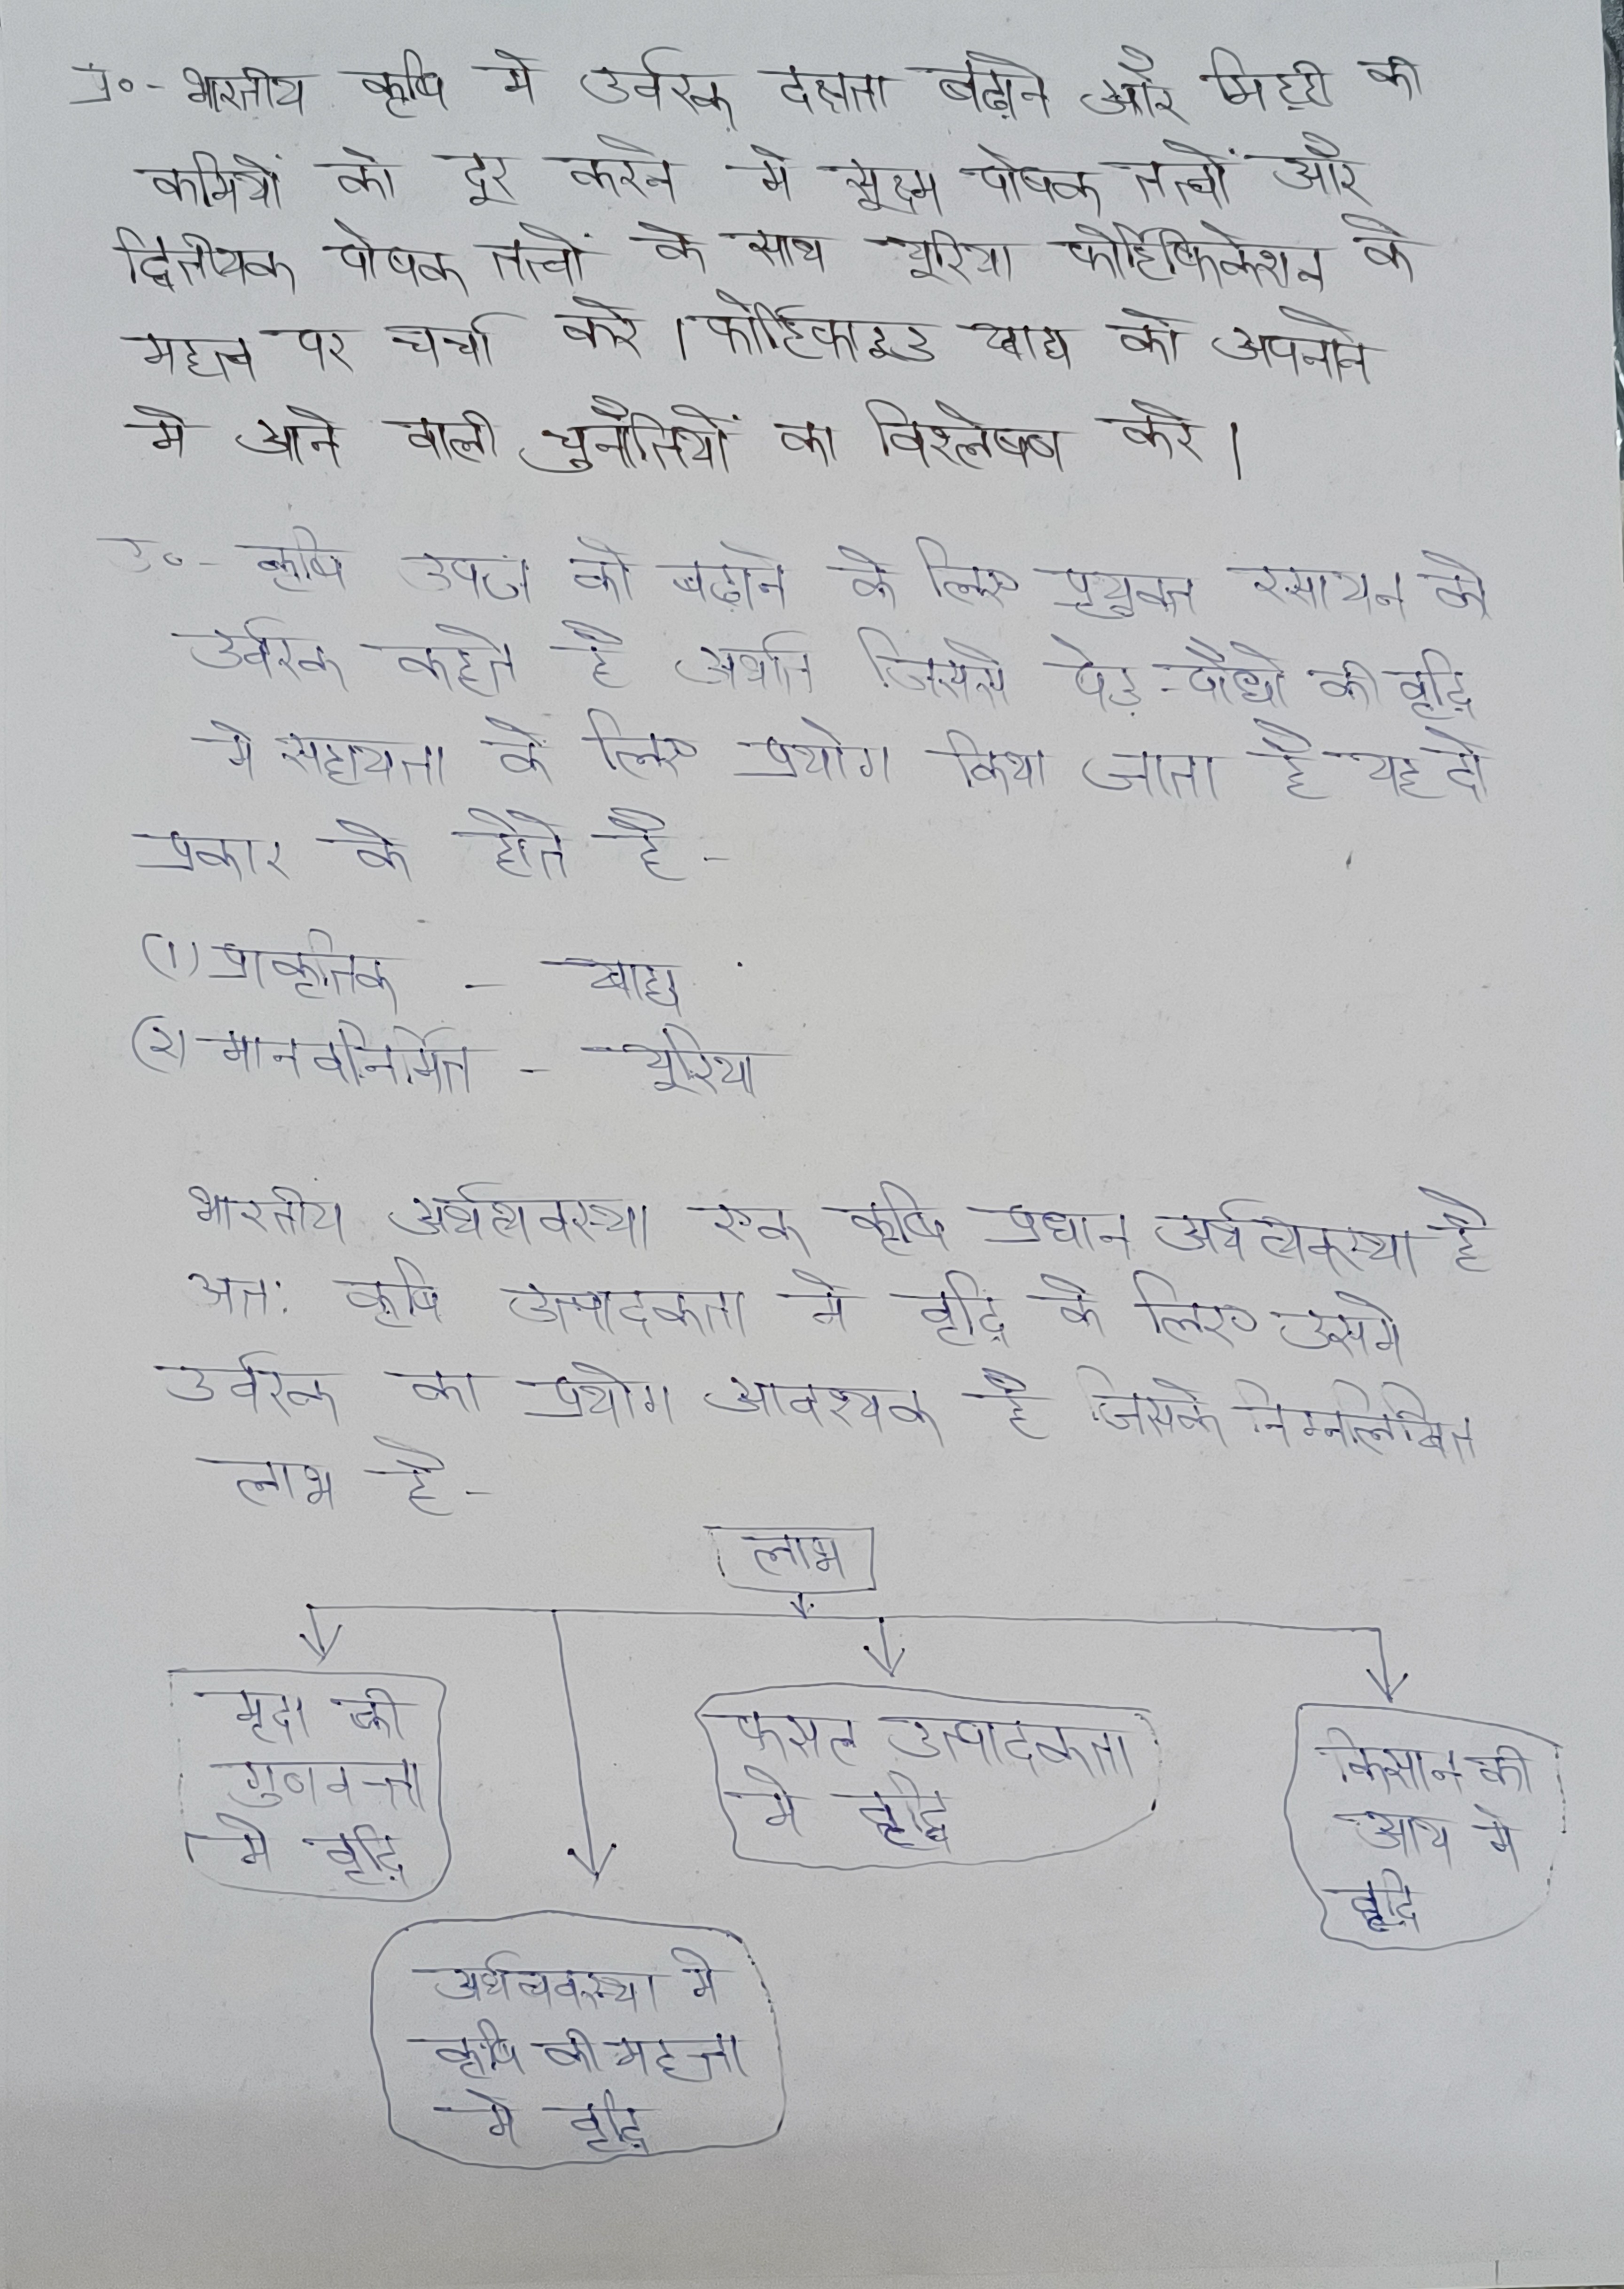 प्र०- भारतीय कृषि मे उर्वरक दक्षता बढ़ाने और मिट्टी की
कमियों को दूर करने मे सूक्ष्म पोषक तत्वों और
द्वितीयक पोषक तत्वों के साथ यूरिया फोर्टिफिकेशन के
महत्व पर चर्चा करे। फोर्टिफाइड खाद्य को अपनाने
मे आने वाली चुनौतियों का विश्लेषण करे।
उ०- कृषि उपज को बढ़ाने के लिए प्रयुक्त रसायन को
उर्वरक कहते है अर्थात जिससे पेड़-पौधो की वृद्धि
मे सहायता के लिए प्रयोग किया जाता है यह दो
प्रकार के होते है -
(1) प्राकृतिक - खाद्य
(2) मानवनिर्मित - यूरिया
भारतीय अर्थव्यवस्था एक कृषि प्रधान अर्थव्यवस्था है
अतः कृषि उत्पादकता मे वृद्धि के लिए उसमे
उर्वरक का प्रयोग आवश्यक है जिसके निम्नलिखित
लाभ है -
लाभ
मृदा की
गुणवत्ता
मे वृद्धि
फसल उत्पादकता
मे वृद्धि
किसान की
आय मे
वृद्धि
अर्थव्यवस्था मे
कृषि की महत्ता
मे वृद्धि